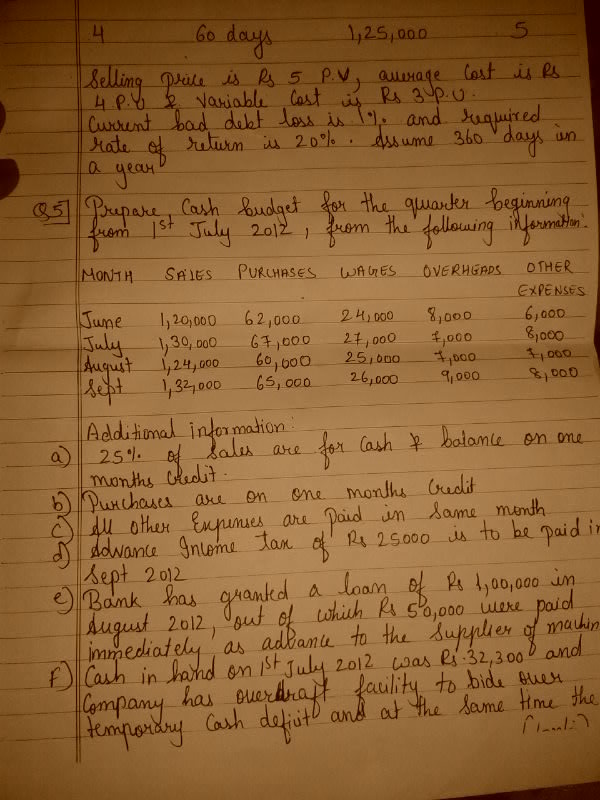 4 60 days 1,25,000 5
Selling price is Rs 5 P.U, average cost is Rs
4 P.U & variable cost is Rs 3 P.U.
Current bad debt loss is 1% and required
rate of return is 20%. Assume 360 days in
a year
Q5] Prepare Cash budget for the quarter beginning
from 1st July 2012, from the following information:
MONTH SALES PURCHASES WAGES OVERHEADS OTHER
EXPENSES
June 1,20,000 62,000 24,000 8,000 6,000
July 1,30,000 67,000 27,000 7,000 8,000
August 1,24,000 60,000 25,000 7,000 7,000
Sept 1,32,000 65,000 26,000 9,000 8,000
Additional information:
a) 25% of Sales are for Cash & balance on one
months Credit.
b) Purchases are on one months Credit
c) All other Expenses are paid in same month
d) Advance Income Tax of Rs 25000 is to be paid in
Sept 2012
e) Bank has granted a loan of Rs 1,00,000 in
August 2012, out of which Rs 50,000 were paid
immediately as advance to the Supplier of machin
F) Cash in hand on 1st July 2012 was Rs.32,300 and
Company has overdraft facility to bide over
temporary Cash deficit and at the same time the